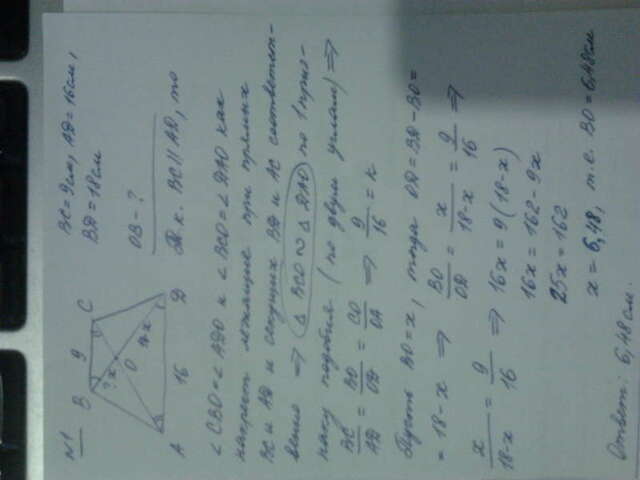 №1
B 9 C
?
x
O
18-x
A 16 D
BC=9см, AD=16см,
BD=18см
OB-?
Т.к. BC||AD, то
∠CBO=∠ADO и ∠BCO=∠DAO как
накрест лежащие при прямых
BC и AD и секущих BD и AC соответст-
венно ⇒ △BCO ∾ △DAO по I приз-
наку подобия (по двум углам) ⇒
BC/AD = BO/OD = CO/OA ⇒ 9/16 = k
Пусть BO=x, тогда OD=BD-BO=
=18-x ⇒ BO/OD = x/18-x = 9/16 ⇒
x/18-x = 9/16 ⇒ 16x=9(18-x)
16x=162-9x
25x=162
x=6,48, т.е. BO=6,48см
Ответ: 6,48см.